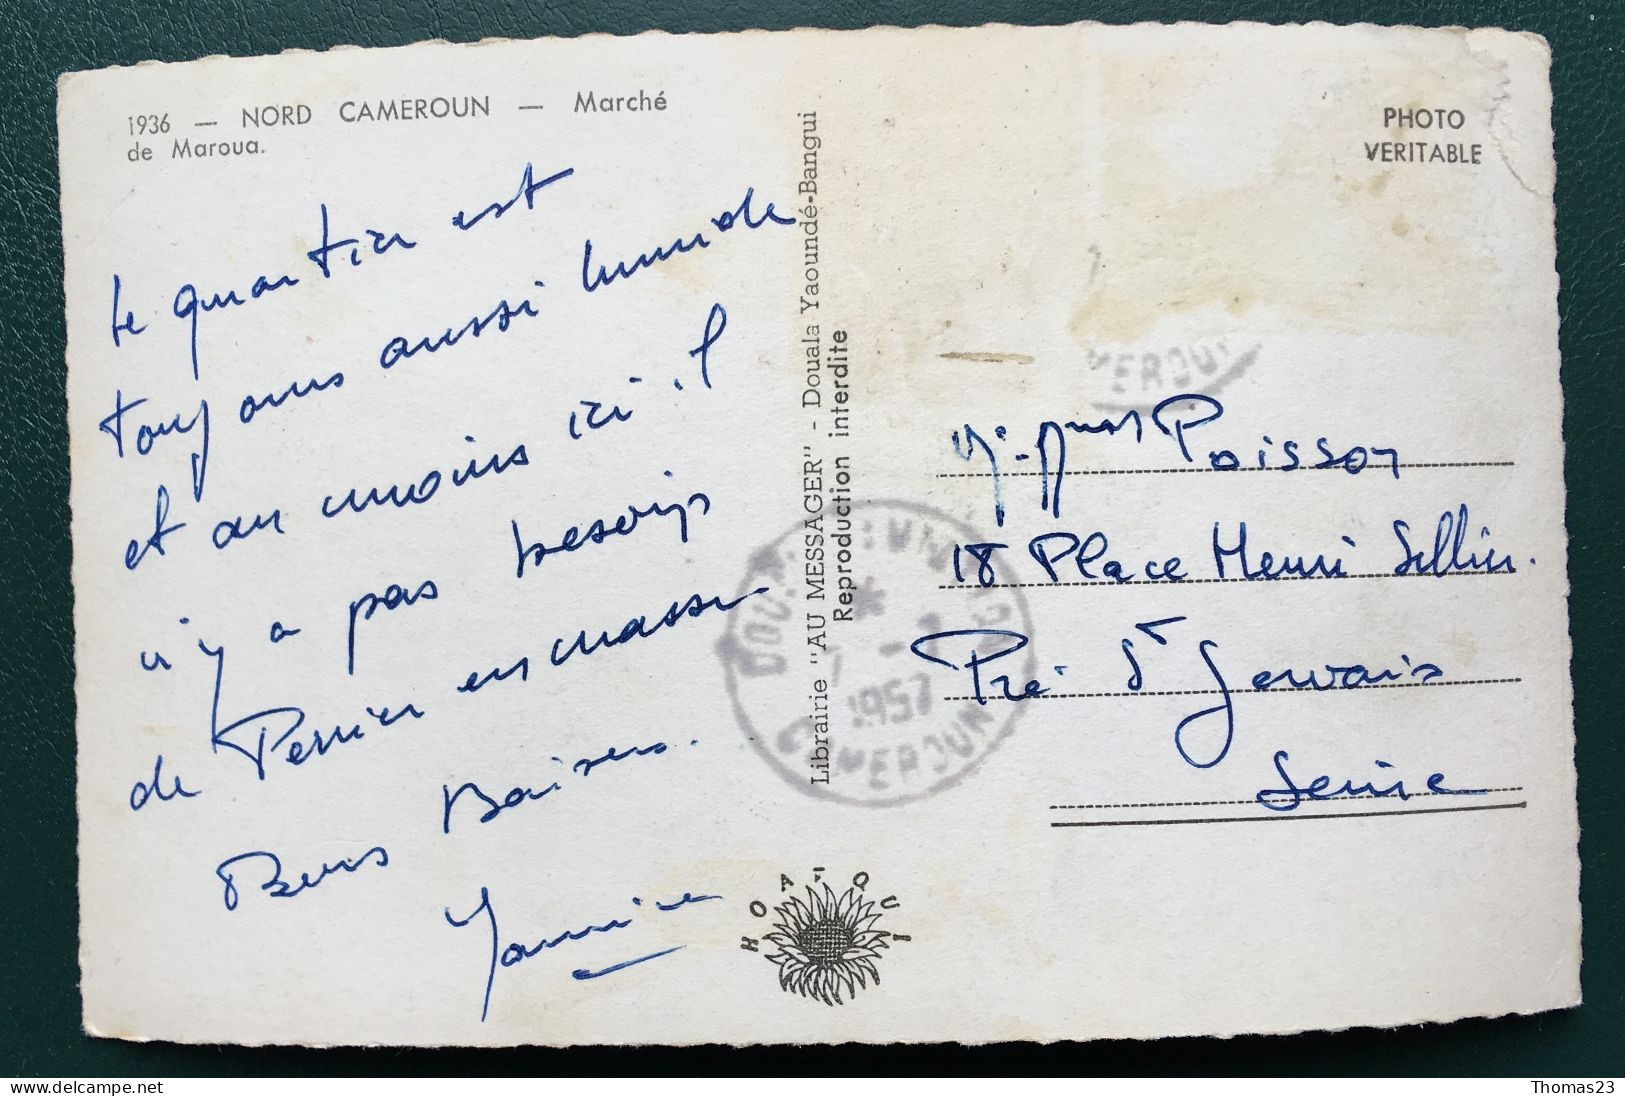 1936 — NORD CAMEROUN — Marché
de Maroua.
Le quartier est
toujours aussi humide
et au moins ici il
n'y a pas besoin
de Perrier en masse
Bons Baisers.
Librairie "AU MESSAGER" - Douala Yaoundé-Bangui
Reproduction interdite
HOA-QUI
PHOTO
VERITABLE
MEROUN
Poisson
18 Place Henri Sellier.
Pré St Gervais
Seine
DOUALA
1957
CAMEROUN
Thomas23